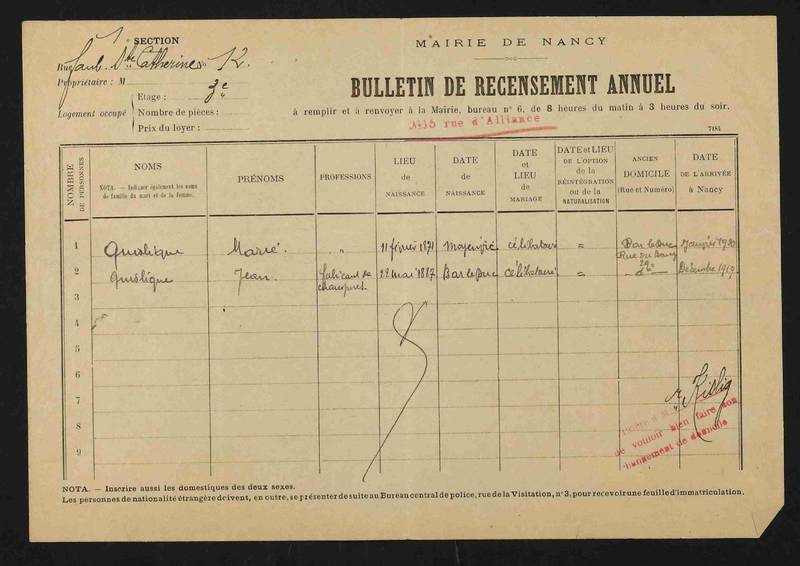 1 SECTION
Rue Faub. Ste Catherine 12.
Propriétaire : M
Logement occupé
Etage : 3e
Nombre de pièces :
Prix du loyer :
MAIRIE DE NANCY
BULLETIN DE RECENSEMENT ANNUEL
à remplir et à renvoyer à la Mairie, bureau n° 6, de 8 heures du matin à 3 heures du soir.
15 rue d'Alliance
7184
NOMBRE DE PERSONNES
NOMS
NOTA. — Indiquer également les noms de famille du mari et de la femme.
PRÉNOMS
PROFESSIONS
LIEU de NAISSANCE
DATE de NAISSANCE
DATE et LIEU de MARIAGE
DATE et LIEU DE L'OPTION de la RÉINTÉGRATION ou de la NATURALISATION
ANCIEN DOMICILE (Rue et Numéro)
DATE DE L'ARRIVÉE à Nancy
1 Marie " 11 février 1871 célibataire = Bar le Duc Rue du Bourg 29 Janvier 1920
2 Jean. fabricant de 28 mai 1887 Bar le Duc célibataire = do Décembre 1919
3
4
5
6
7
8
9
de vouloir bien faire son
changement de domicile
NOTA. — Inscrire aussi les domestiques des deux sexes.
Les personnes de nationalité étrangère doivent, en outre, se présenter de suite au Bureau central de police, rue de la Visitation, n° 3, pour recevoir une feuille d'immatriculation.